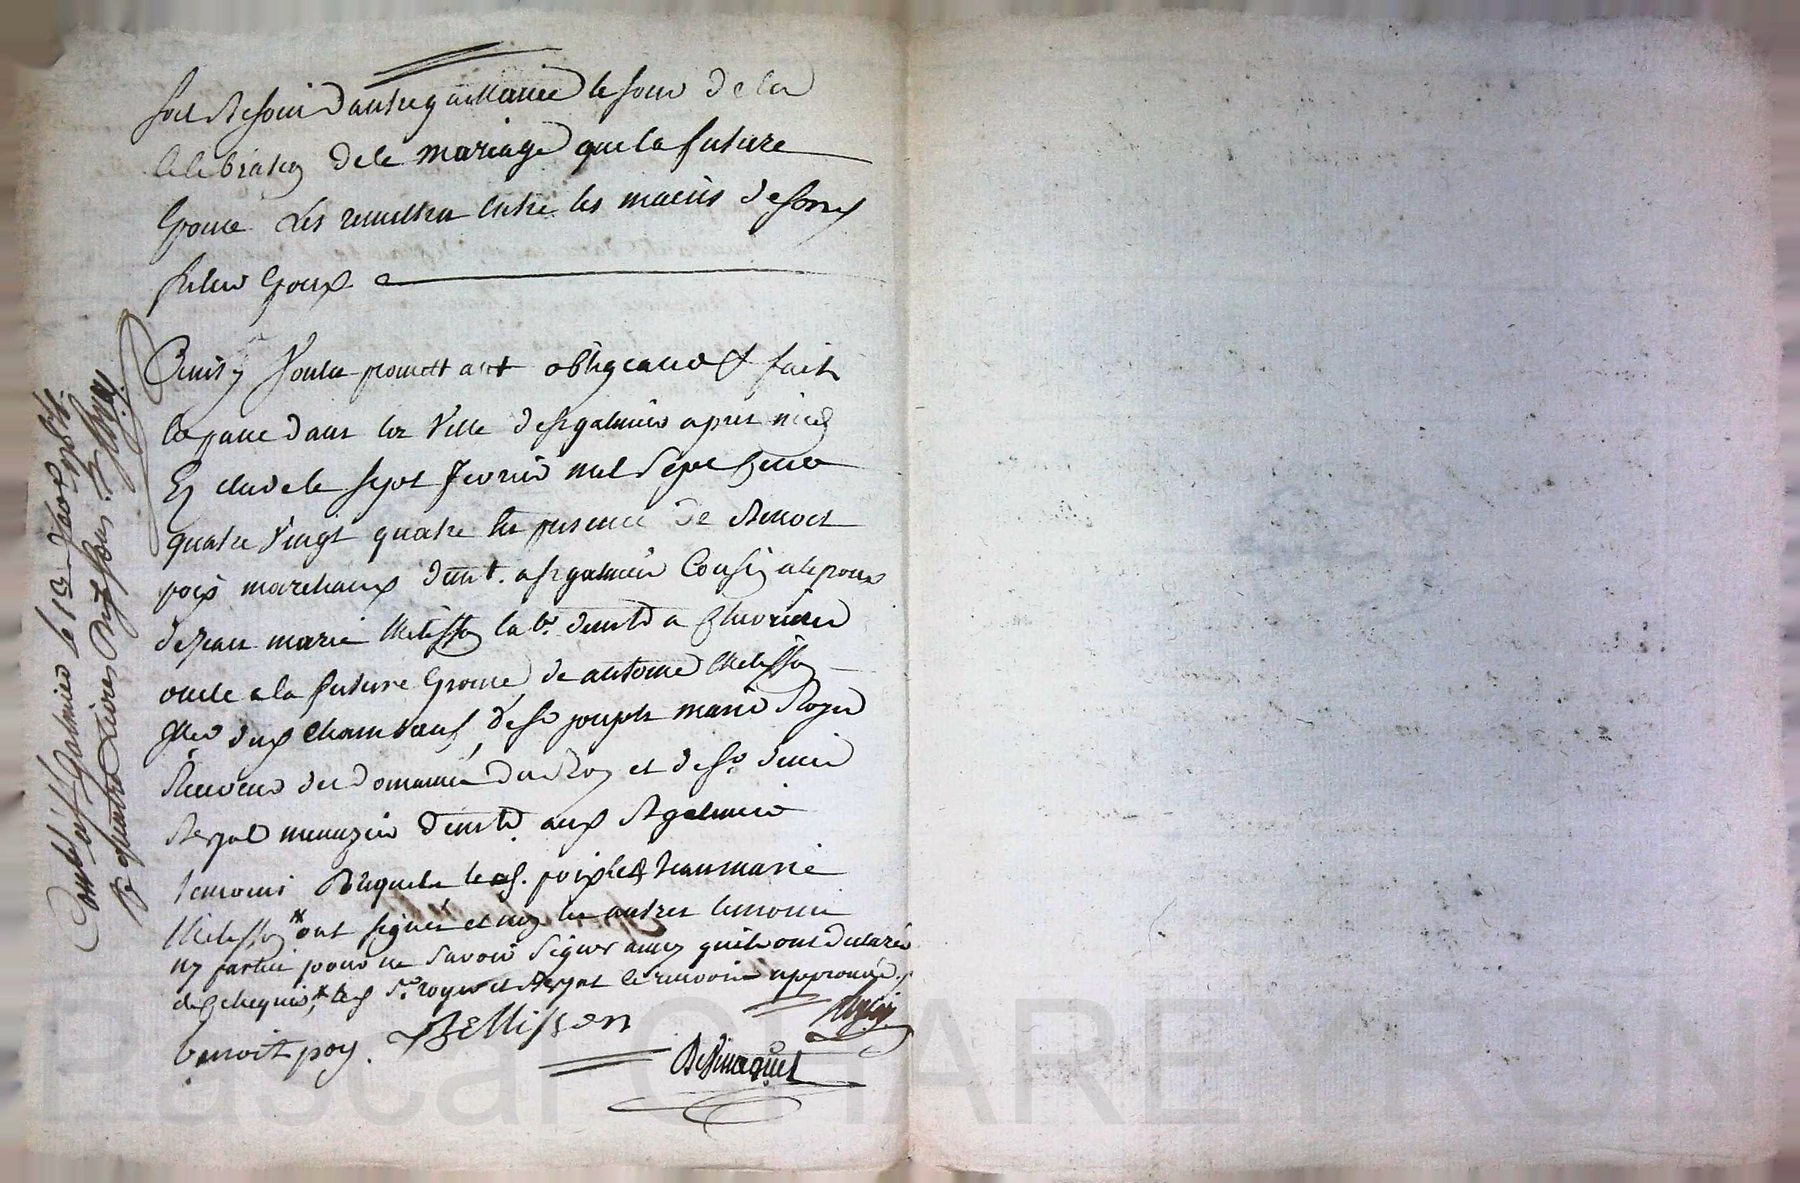 soit besoin d'autre quittance le jour de la
celebration de ce mariage que la future
Epouse les remettra entre les mains de son
futur Epoux
Ainsy voulu promettant obligeant &c fait
et passé dans la ville de st galmier apres midy
Et clos le sept fevrier mil sept Cens
quatre vingt quatre En presence de Benoit
poix marchand demt. a st galmier Cousin a lepoux
de jean marie thelisson lab.r demt a
oncle a la future Epouse, de antoine thelisson
de Chambeuf, de sr joseph marie Roger
Receveur des domaines du Roy et de sr. denis
Reynd menuzier demt. aux St galmier
temoins Requis lesd. poix et Jean marie
thelisson * ont signés et non les autres temoins
ny parties pour ne savoir signer ainsy quils ont declarés
de ce enquis, * lesd. Srs. roger et le renvoy approuvé.
benoit poy. thellisson
Controllé a St Galmier le 13
R quatre Livres dix sous
Pascal CHAREYRON